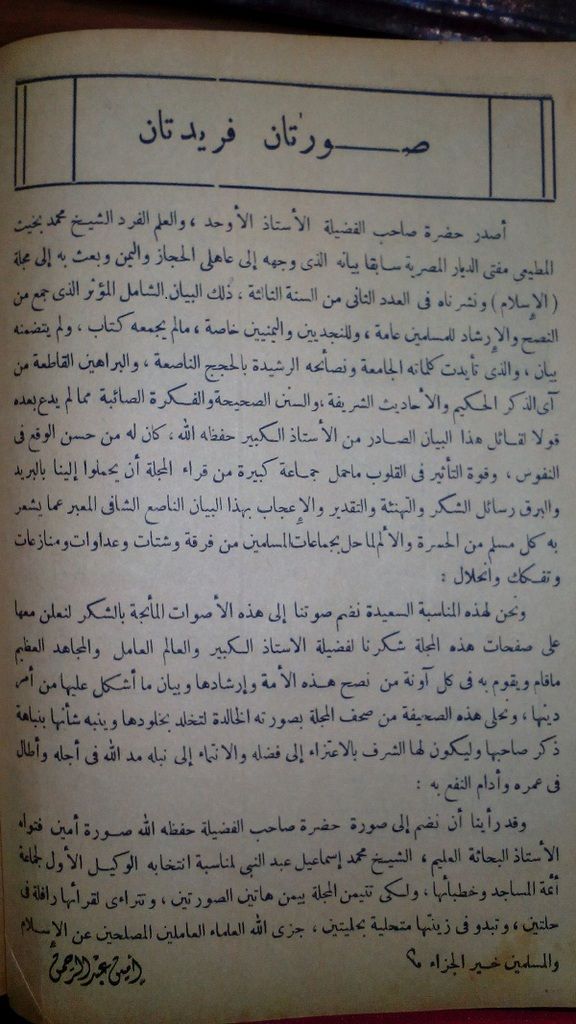 صورتان فريدتان
أصدر حضرة صاحب الفضيلة الأستاذ الأوحد ، والعلم الفرد الشيخ محمد بخيت
المطيعى مفتى الديار المصرية سابقا بيانه الذى وجهه إلى عاهلى الحجاز واليمن وبعث به إلى مجلة
( الإسلام ) ونشرناه فى العدد الثانى من السنة الثالثة ، ذلك البيان الشامل المؤثر الذى جمع من
النصح والإرشاد للمسلمين عامة ، وللنجديين واليمنيين خاصة ، مالم يجمعه كتاب ، ولم يتضمنه
بيان ، والذى تأيدت كلماته الجامعة ونصائحه الرشيدة بالحجج الناصعة ، والبراهين القاطعة من
آى الذكر الحكيم والأحاديث الشريفة ، والسنن الصحيحة والفكرة الصائبة مما لم يدع بعده
قولا لقائل هذا البيان الصادر من الأستاذ الكبير حفظه الله ، كان له من حسن الوقع فى
النفوس ، وقوة التأثير فى القلوب ماحمل جماعة كبيرة من قراء المجلة أن يحملوا إلينا بالبريد
والبرق رسائل الشكر والتهنئة والتقدير والإعجاب بهذا البيان الناصع الشافى المعبر عما يشعر
به كل مسلم من الحسرة والألم لما حل بجماعات المسلمين من فرقة وشتات وعداوات ومنازعات
وتفكك وانحلال :
ونحن لهذه المناسبة السعيدة نضم صوتنا إلى هذه الأصوات المائجة بالشكر لنعلن معها
على صفحات هذه المجلة شكرنا لفضيلة الاستاذ الكبير والعالم العامل والمجاهد العظيم
ماقام ويقوم به فى كل آونة من نصح هذه الأمة وإرشادها وبيان ما أشكل عليها من أمر
دينها ، ونحلى هذه الصحيفة من صحف المجلة بصورته الخالدة لتخلد بخلودها وينبه شأنها بنباهة
ذكر صاحبها وليكون لها الشرف بالاعتزاء إلى فضله والانتماء إلى نبله مد الله فى أجله وأطال
فى عمره وأدام النفع به :
وقد رأينا أن نضم إلى صورة حضرة صاحب الفضيلة حفظه الله صورة أمين فتواه
الأستاذ البحاثة العليم ، الشيخ محمد إسماعيل عبد النبى لمناسبة انتخابه الوكيل الأول لجماعة
أئمة المساجد وخطبائها ، ولكى تتيمن المجلة بيمن هاتين الصورتين ، وتتراءى لقرائها رافلة فى
حلتين ، وتبدو فى زينتها متحلية بحليتين ، جزى الله العلماء العاملين المصلحين عن الإسلام
والمسلمين خير الجزاء
أمين عبد الرحمن